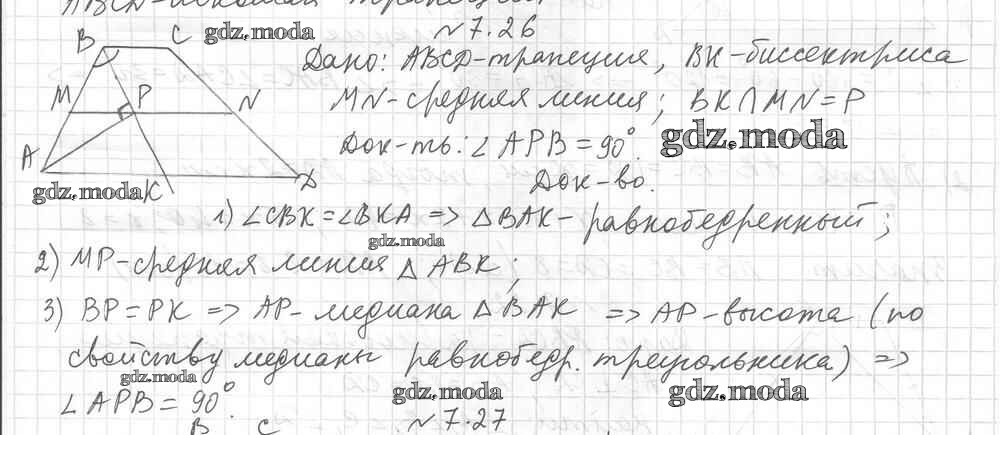 ABCD-искомая трапеция
№7.26
B C gdz.moda
Дано: ABCD-трапеция, BK-биссектриса
M P N
MN-средняя линия; BK∩MN=P
A
Док-ть: ∠APB=90° gdz.moda
gdz.moda K D
Док-во.
1) ∠CBK=∠BKA => △BAK-равнобедренный;
gdz.moda
2) MP-средняя линия △ABK;
3) BP=PK => AP-медиана △BAK => AP-высота (по
свойству медианы равнобедр. треугольника) =>
gdz.moda gdz.moda gdz.moda
∠APB=90°.
B C №7.27